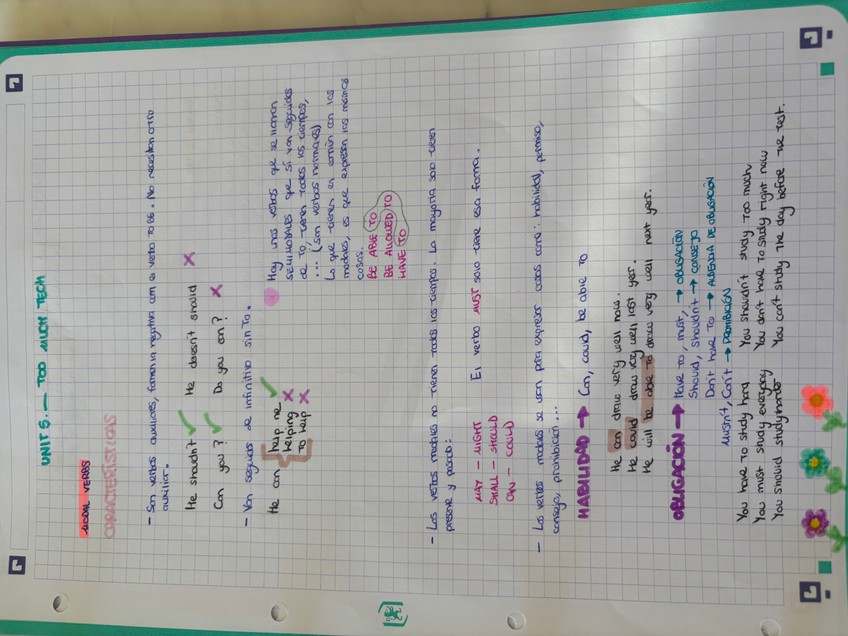 UNIT 5. — TOO MUCH TECH
MODAL VERBS
CARACTERÍSTICAS
- Son verbos auxiliares, forman la negativa con el verbo TO BE. No necesitan otro
auxiliar.
He shouldn't ✓ He doesn't should ✗
Can you? ✓ Do you can? ✗
- Van seguidos de infinitivo sin To.
He can { help me ✓
helping ✗
to help ✗
Hay unos verbos que se llaman
SEMIMODALES que sí van seguidos
de TO, tienen todos los tiempos,
... (son verbos normales)
Lo que tienen en común con los
modales, es que expresan las mismas
cosas.
BE ABLE TO
BE ALLOWED TO
HAVE TO
- Los verbos modales no tienen todos los tiempos. La mayoría solo tienen
presente y pasado:
MAY - MIGHT
SHALL - SHOULD
CAN - COULD
El verbo MUST solo tiene esa forma.
- Los verbos modales se usan para expresar cosas como: habilidad, permiso,
consejo, prohibición...
HABILIDAD → Can, could, be able to
He can draw very well now.
He could draw very well last year.
He will be able to draw very well next year.
OBLIGACIÓN → Have to, must, → OBLIGACIÓN
Should, shouldn't → CONSEJO
Don't have to → AUSENCIA DE OBLIGACIÓN
Mustn't, Can't → PROHIBICIÓN
You have to study hard You shouldn't study too much
You must study everyday You don't have to study right now
You should study harder You can't study the day before the test.